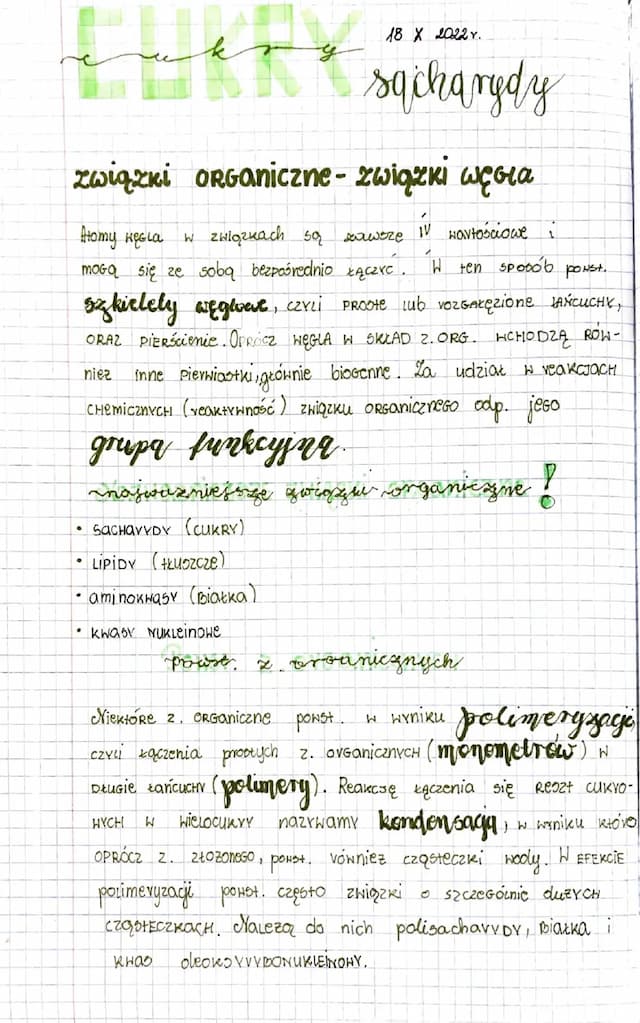 CUKRY
cukry
18 X 2022r.
sacharydy
związki organiczne - związki węgla
Atomy węgla w związkach są zawsze IV wartościowe i
mogą się ze sobą bezpośrednio łączyć. W ten sposób powst.
szkielety węglowe, czyli proste lub rozgałęzione łańcuchy,
oraz pierścienie. Oprócz węgla w skład z. org. wchodzą rów-
nież inne pierwiastki, głównie biogenne. Za udział w reakcjach
chemicznych (reaktywność) związku organicznego odp. jego
grupa funkcyjna.
najważniejsze związki organiczne !
• sacharydy (cukry)
• lipidy (tłuszcze)
• aminokwasy (białka)
• kwasy nukleinowe
powst. z. organicznych
Niektóre z. organiczne powst. w wyniku polimeryzacji
czyli łączenia prostych z. organicznych (monometrów) w
długie łańcuchy (polimery). Reakcję łączenia się reszt cukro-
wych w wielocukry nazywamy kondensacją, w wyniku które
oprócz z. złożonego, powst. również cząsteczki wody. W efekcie
polimeryzacji powst. często związki o szczególnie dużych
cząsteczkach. Należą do nich polisacharydy, białka i
kwas